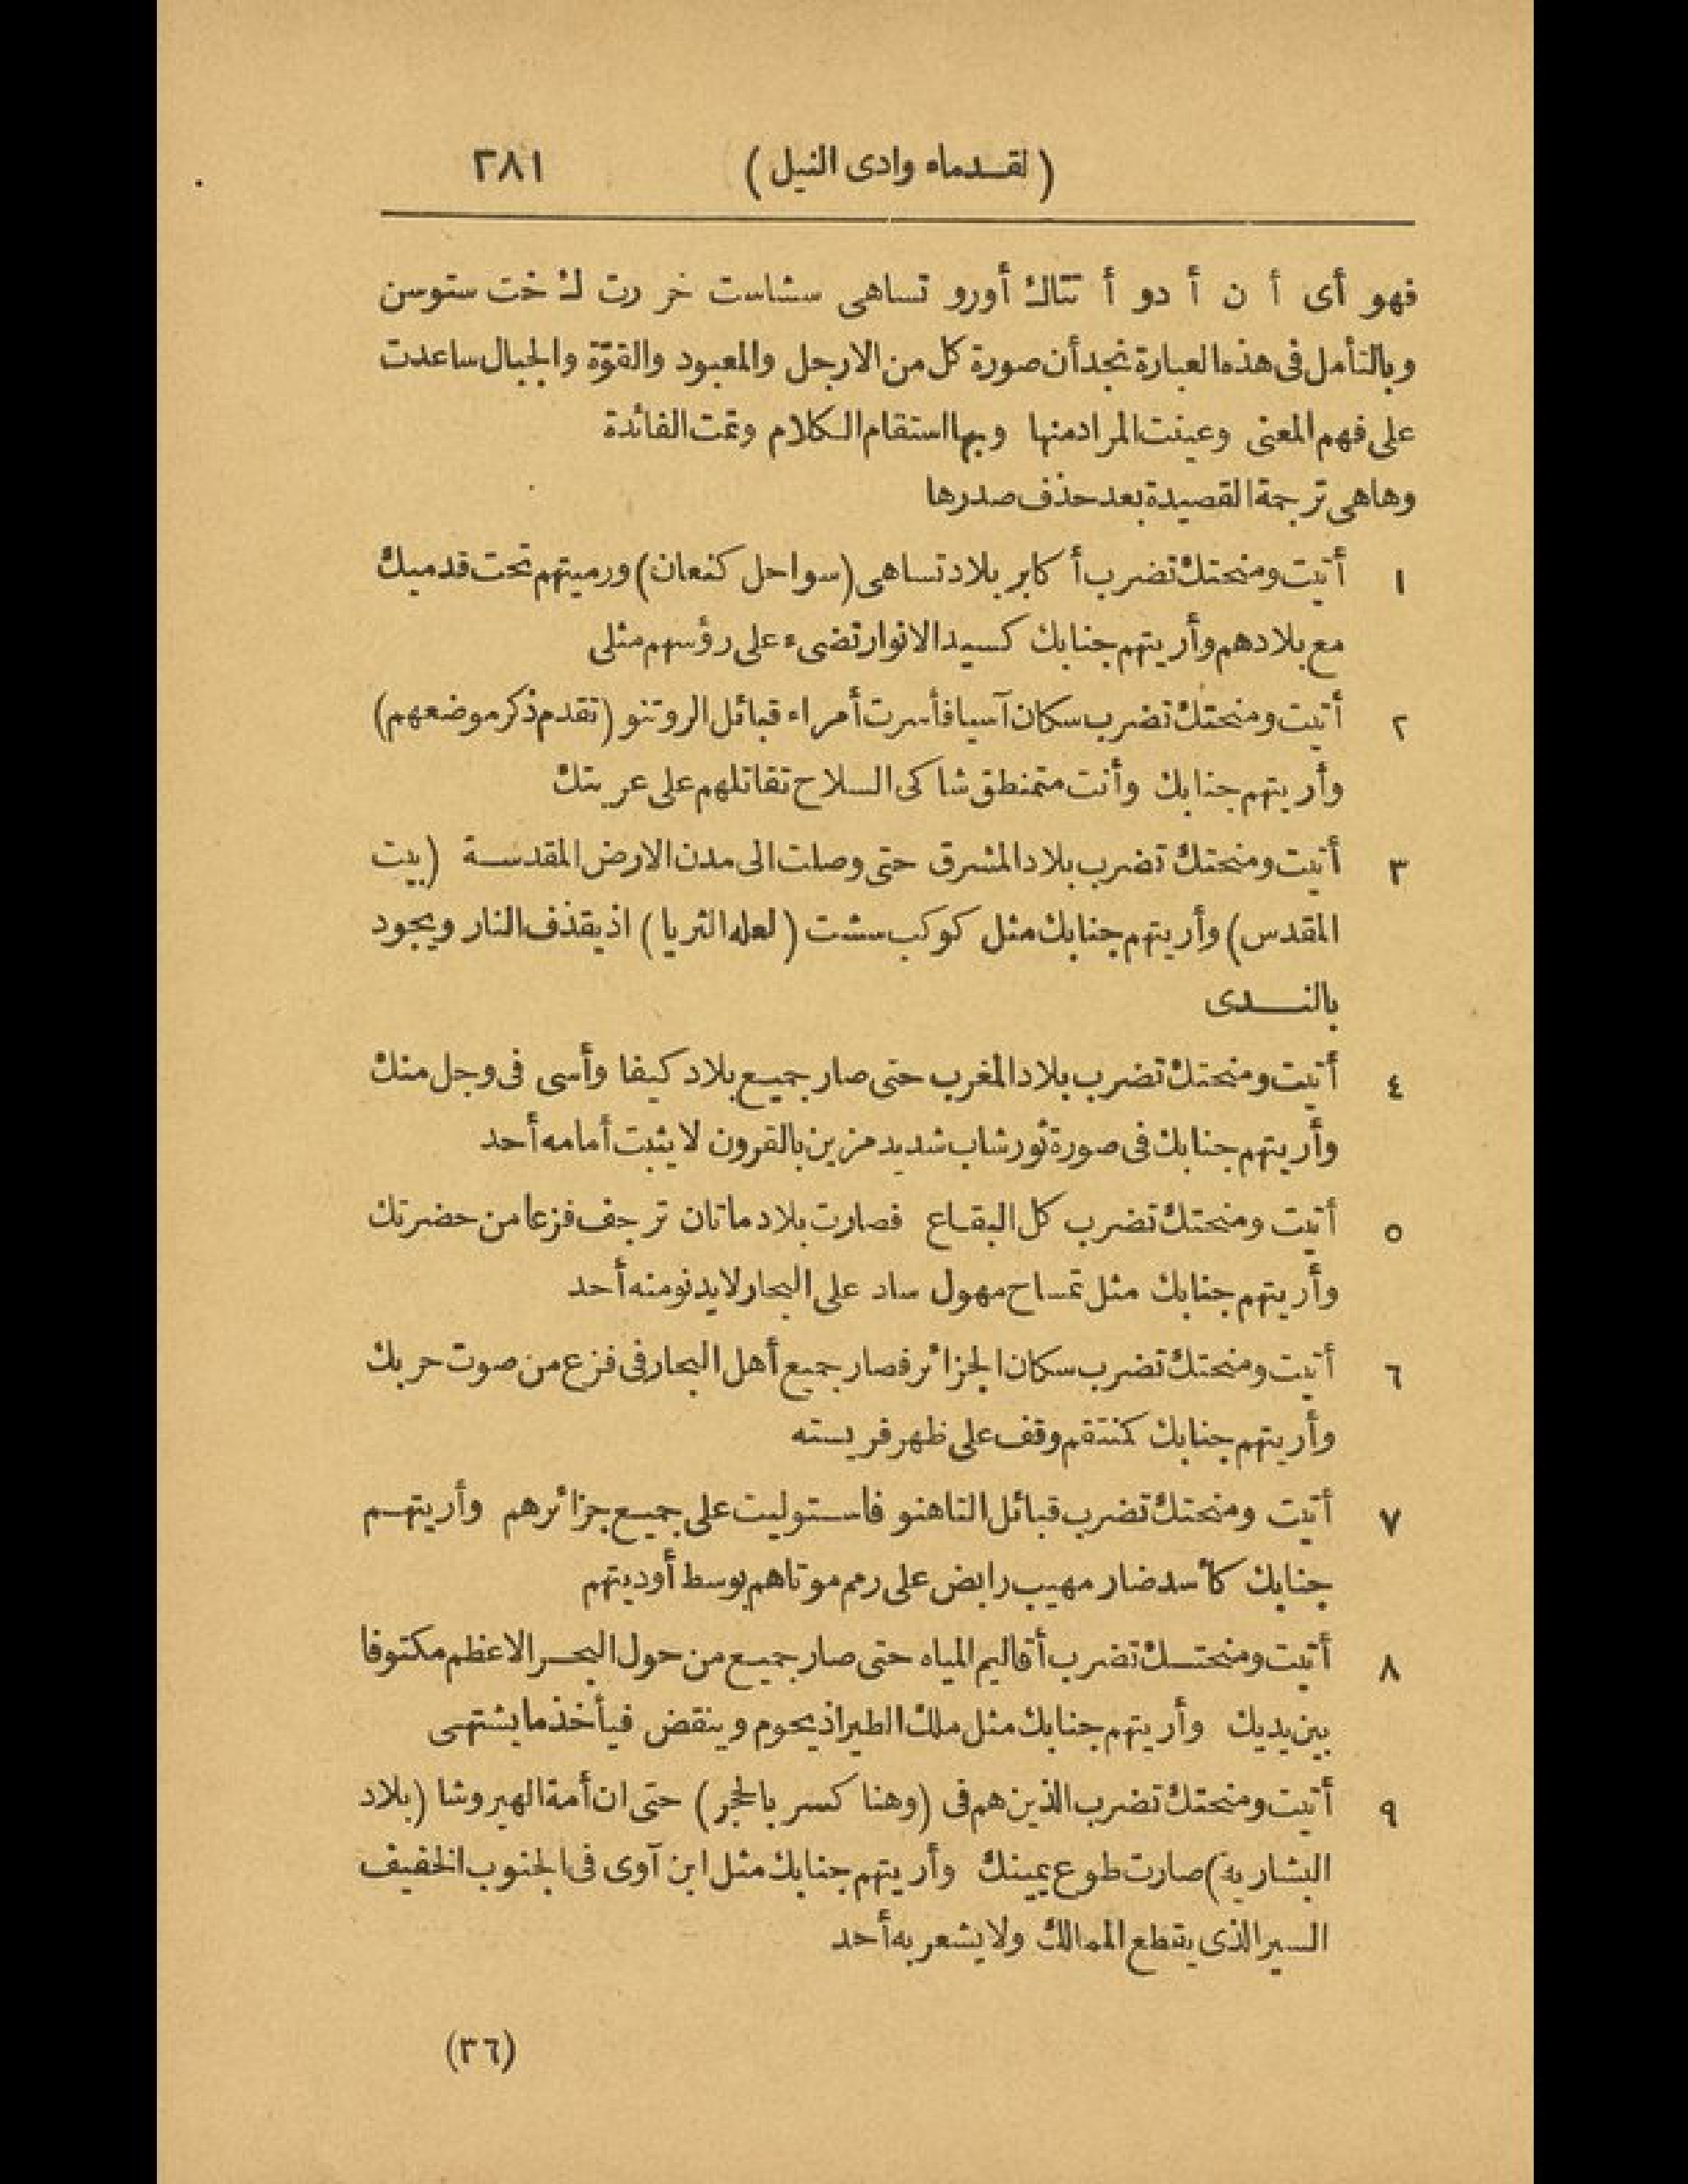 (لقـدماء وادى النيل) ٢٨١
فهو أى أ ن أ دو أ تتاك أورو تساهى سشاست خر رت ك خت ستوسن
وبالتأمل فى هذه العبارة نجد أن صورة كل من الارجل والمعبود والقوّة والجبال ساعدت
على فهم المعنى وعينت المراد منها وبها استقام الكلام وتمت الفائدة
وها هى ترجمة القصيدة بعد حذف صدرها
١ أتيت ومنحتك تضرب أكابر بلاد تساهى (سواحل كنعان) ورميتهم تحت قدميك
مع بلادهم وأريتهم جنابك كسيد الانوار تضىء على رؤسهم مثلى
٢ أتيت ومنحتك تضرب سكان آسيا فأسرت أمراء قبائل الروتنو (تقدم ذكر موضعهم)
وأريتهم جنابك وأنت متمنطق شاكى السلاح تقاتلهم على عربتك
٣ أتيت ومنحتك تضرب بلاد المشرق حتى وصلت الى مدن الارض المقدسـة (بيت
المقدس) وأريتهم جنابك مثل كوكب سشت (لعله الثريا) اذ يقذف النار ويجود
بالنـدى
٤ أتيت ومنحتك تضرب بلاد المغرب حتى صار جميع بلاد كيفا وأسى فى وجل منك
وأريتهم جنابك فى صورة ثور شاب شديد مزين بالقرون لا يثبت أمامه أحد
٥ أتيت ومنحتك تضرب كل البقـاع فصارت بلاد ماتان ترجف فزعا من حضرتك
وأريتهم جنابك مثل تمساح مهول ساد على البحار لا يدنو منه أحد
٦ أتيت ومنحتك تضرب سكان الجزائر فصار جميع أهل البحار فى فزع من صوت حربك
وأريتهم جنابك كمنتقم وقف على ظهر فريسته
٧ أتيت ومنحتك تضرب قبائل التاهنو فاسـتوليت على جميـع جزائرهم وأريتهـم
جنابك كأسد ضار مهيب رابض على رمم موتاهم بوسط أوديتهم
٨ أتيت ومنحتـك تضرب أقاليم المياه حتى صار جميـع من حول البحـر الاعظم مكتوفا
بين يديك وأريتهم جنابك مثل ملك الطير اذ يحوم وينقض فيأخذ ما يشتهـى
٩ أتيت ومنحتك تضرب الذين هم فى (وهنا كسر بالحجر) حتى ان أمة الهيروشا (بلاد
البشارية) صارت طوع يمينك وأريتهم جنابك مثل ابن آوى فى الجنوب الخفيف
السير الذى يقطع الممالك ولا يشعر به أحد
(٣٦)